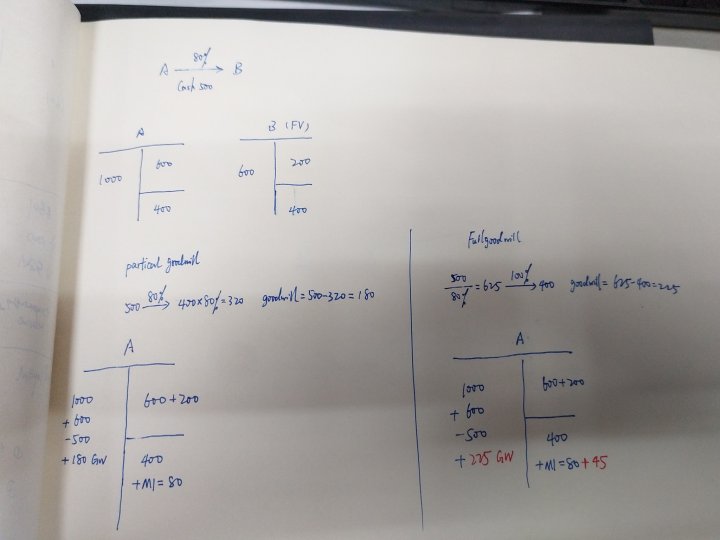 80%
A → B
Cash 500
A
1000 600
400
B (FV)
600 200
400
partical goodwill
500 80% → 400×80%=320 goodwill=500-320=180
A
1000 600+200
+600
-500
+180 GW 400
+MI=80
Full goodwill
500/80% =625 100% → 400 goodwill=625-400=225
A
1000 600+200
+600
-500 400
+225 GW +MI=80+45